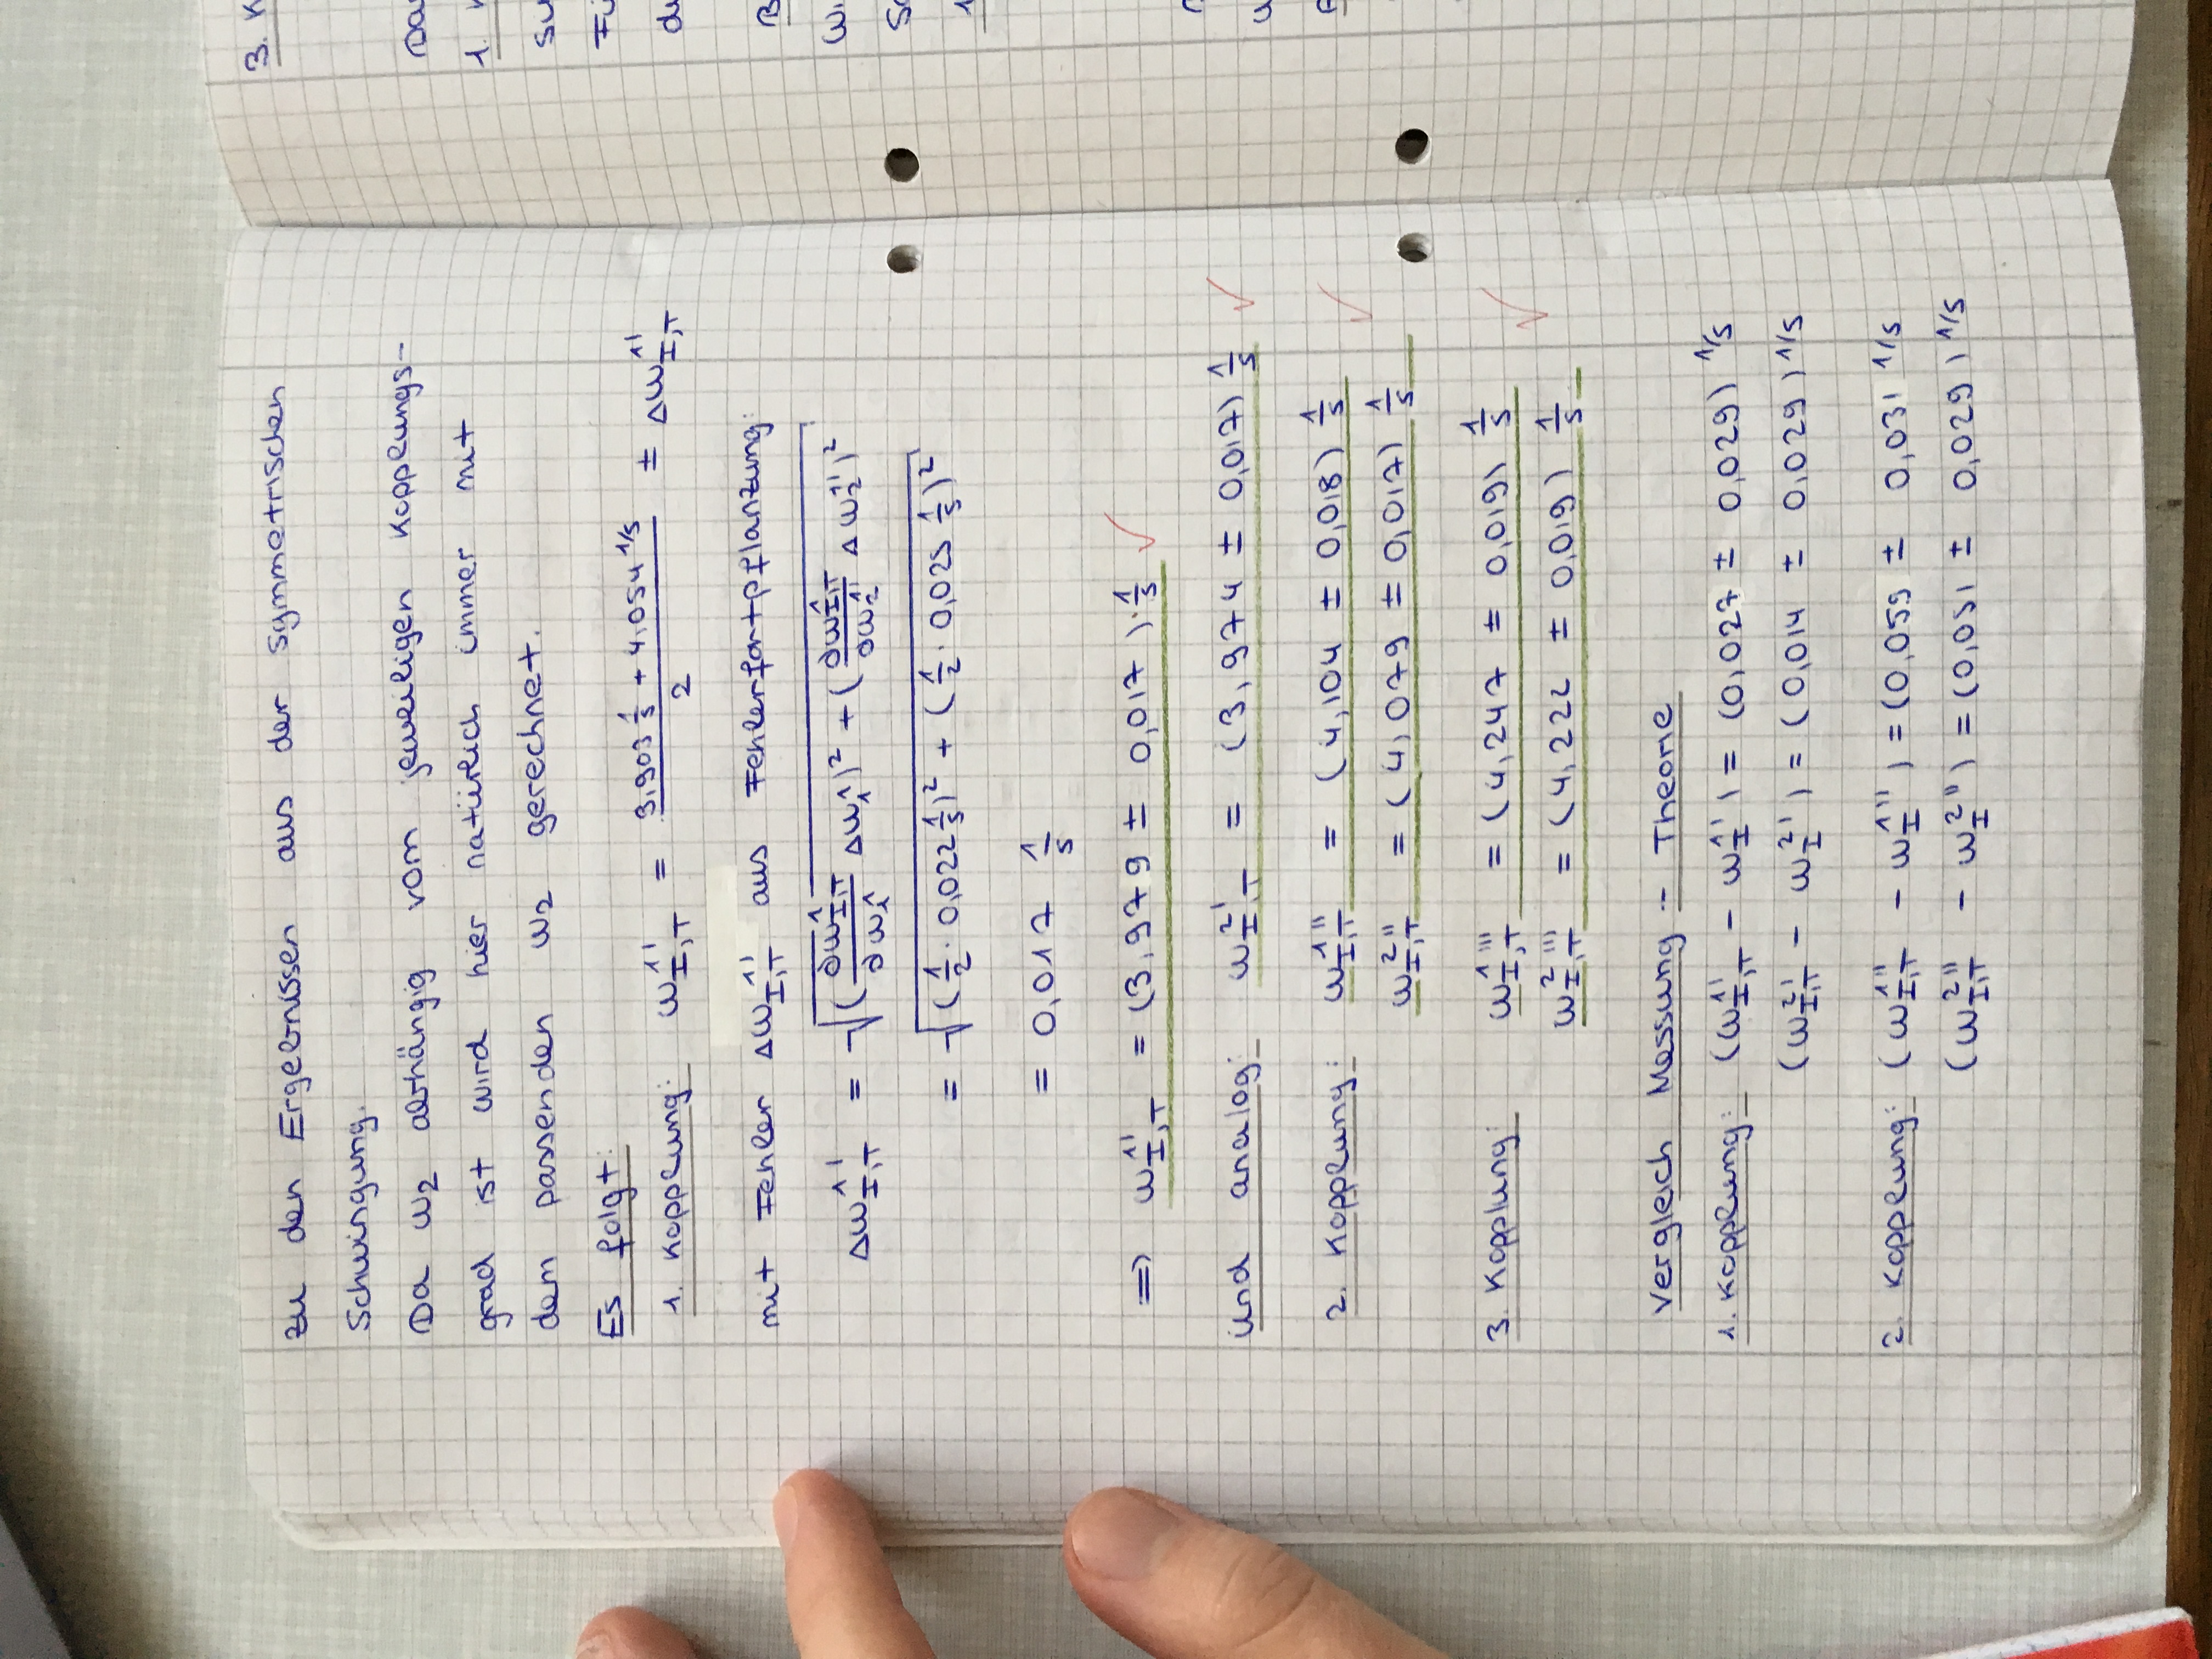 zu den Ergebnissen aus der symmetrischen
Schwingung.
Da ω₂ abhängig vom jeweiligen Kopplungs-
grad ist wird hier natürlich immer mit
dem passenden ω₂ gerechnet.
Es folgt:
1. Kopplung: ω_{I,T}^{1'} = (3,903 1/s + 4,054 1/s)/2 ± Δω_{I,T}^{1'}
mit Fehler Δω_{I,T}^{1'} aus Fehlerfortpflanzung:
Δω_{I,T}^{1'} = √((∂ω_{I,T}^{1}/∂ω_1^1 Δω_1^1)² + (∂ω_{I,T}^{1}/∂ω_2^{1'} Δω_2^{1'})²)
= √((1/2 · 0,022 1/s)² + (1/2 · 0,025 1/s)²)
= 0,017 1/s
⇒ ω_{I,T}^{1'} = (3,979 ± 0,017) · 1/s ✓
und analog: ω_{I,T}^{2'} = (3,974 ± 0,017) 1/s ✓
2. Kopplung: ω_{I,T}^{1''} = (4,104 ± 0,018) 1/s ✓
ω_{I,T}^{2''} = (4,079 ± 0,017) 1/s
3. Kopplung: ω_{I,T}^{1'''} = (4,247 ± 0,019) 1/s ✓
ω_{I,T}^{2'''} = (4,222 ± 0,019) 1/s
Vergleich Messung – Theorie
1. Kopplung: (ω_{I,T}^{1'} − ω_I^{1'}) = (0,027 ± 0,029) 1/s
(ω_{I,T}^{2'} − ω_I^{2'}) = (0,014 ± 0,029) 1/s
2. Kopplung: (ω_{I,T}^{1''} − ω_I^{1''}) = (0,059 ± 0,031 1/s
(ω_{I,T}^{2''} − ω_I^{2''}) = (0,051 ± 0,029) 1/s
3. K
Da
1. K